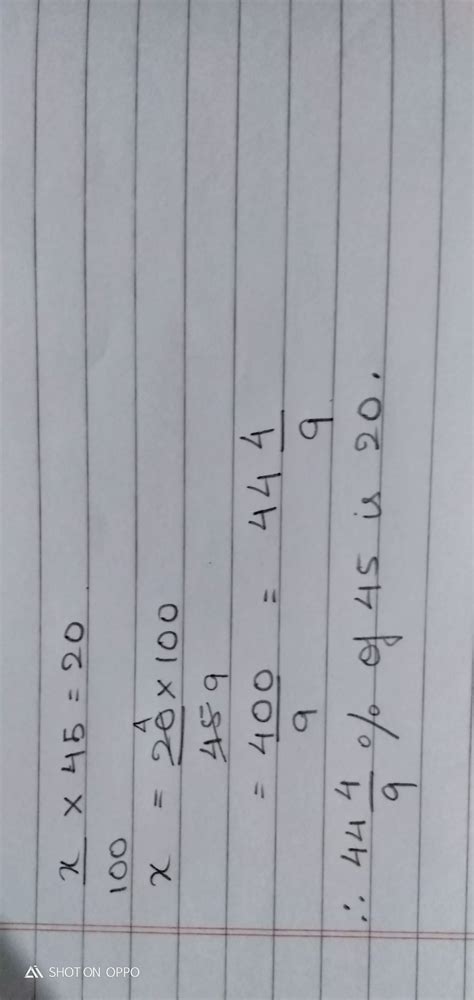 x/100 × 45 = 20
x = 20 4 × 100 / 45 9
= 400/9 = 44 4/9
∴ 44 4/9 % of 45 is 20.
SHOT ON OPPO